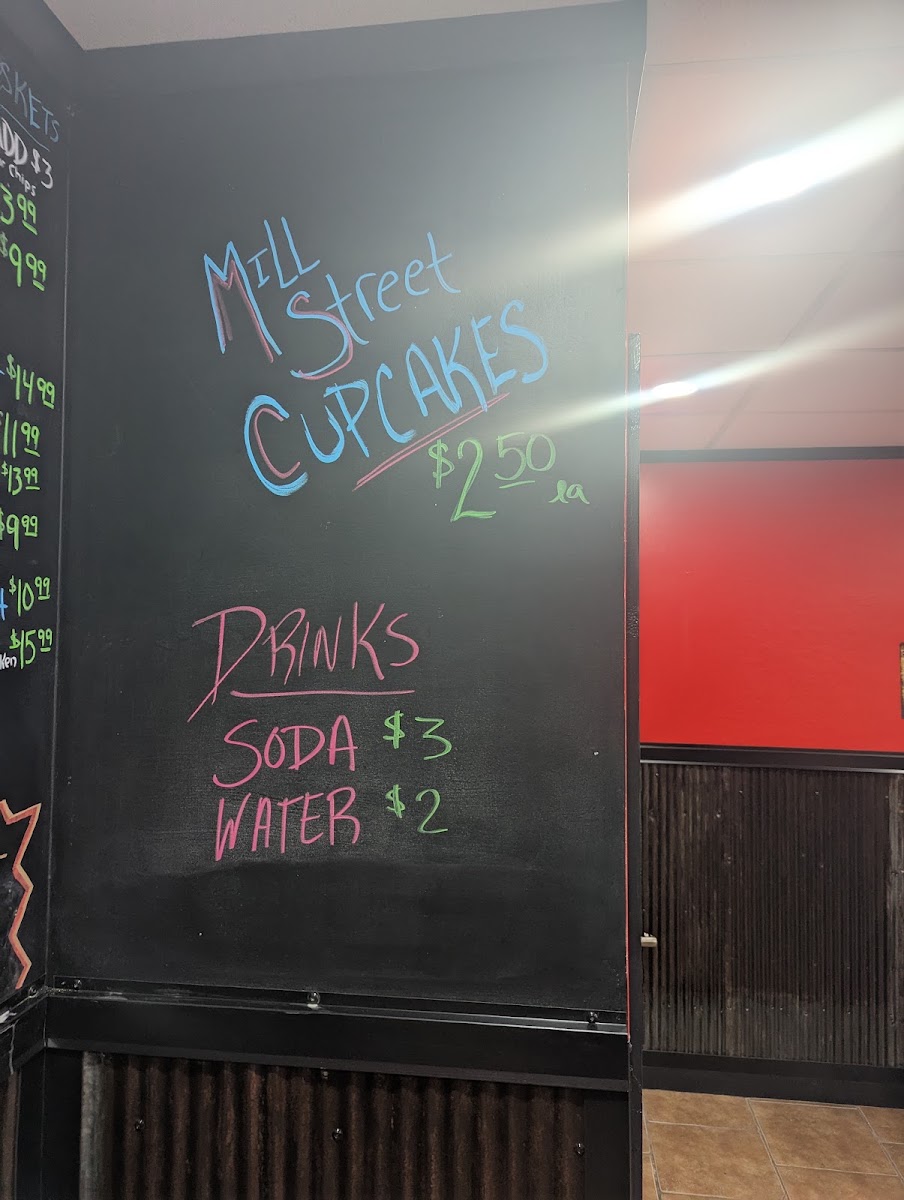 ADD $3
Chips
3.99
$9.99
$14.99
11.99
$13.99
$9.99
$10.99
$15.99
Mill
Street
CUPCAKES
$2.50 ea
DRINKS
SODA $3
WATER $2